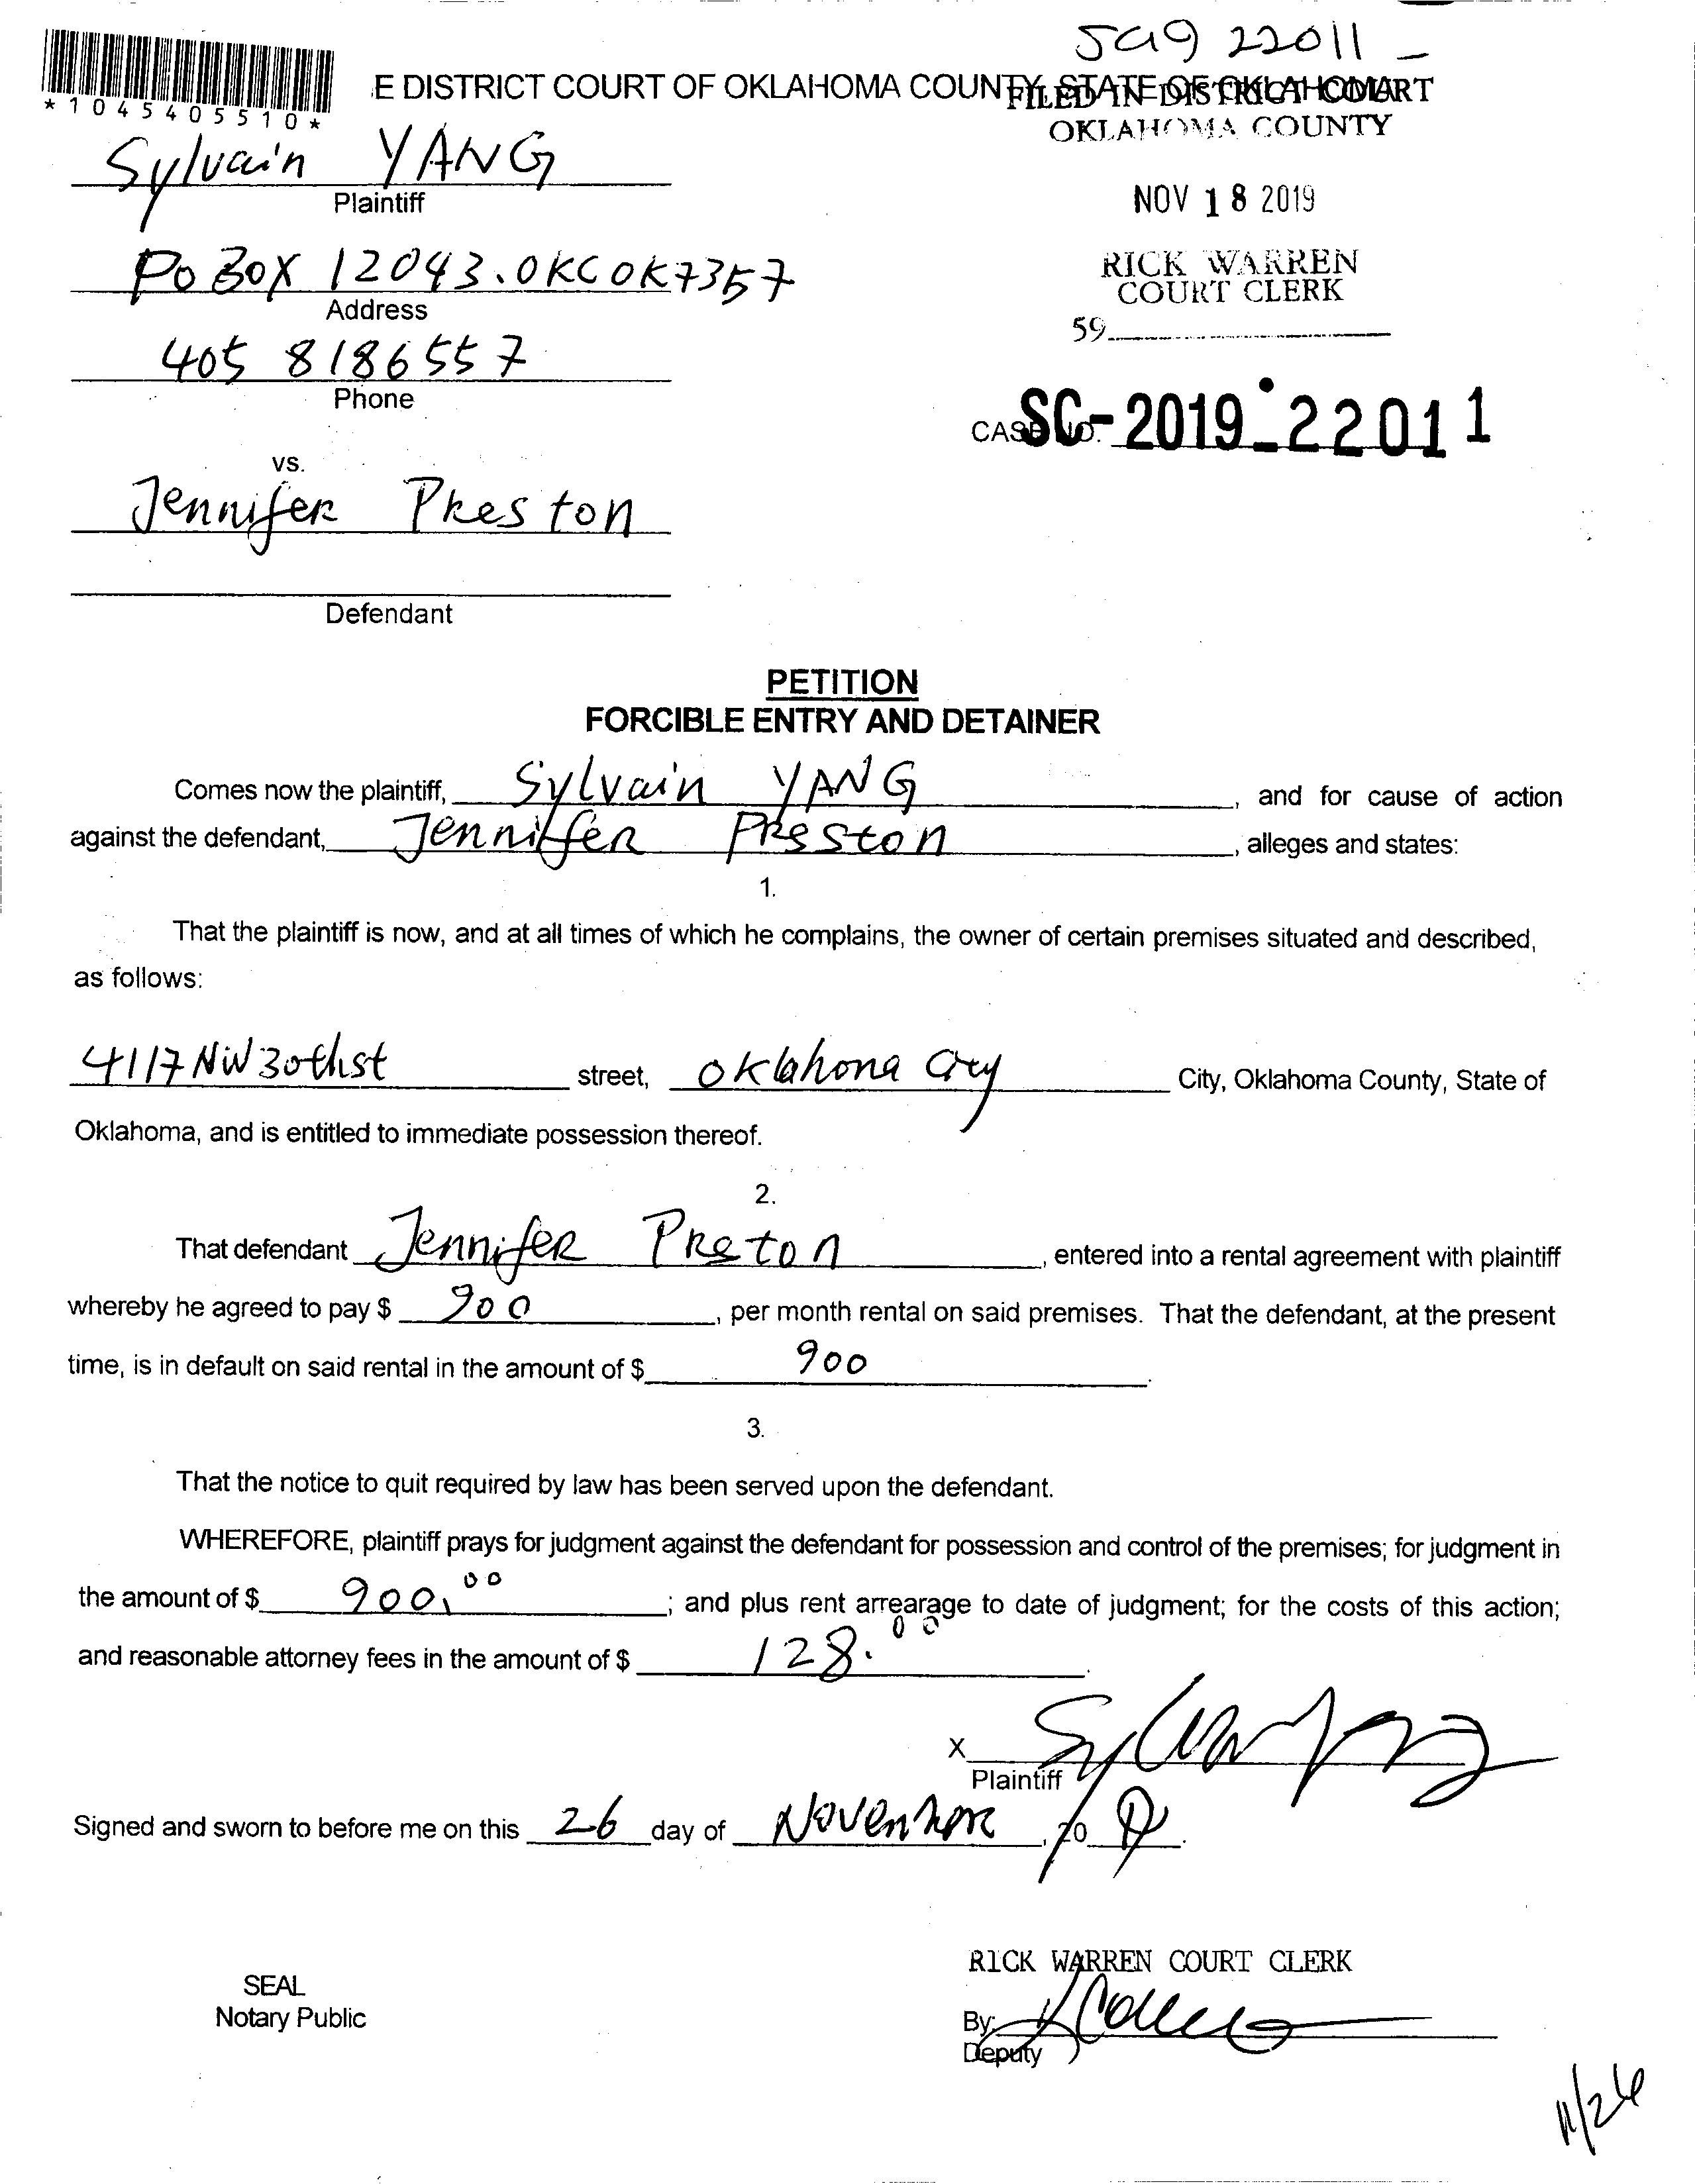 SC19 22011 -
*1045405510*
E DISTRICT COURT OF OKLAHOMA COUNTY, STATE OF OKLAHOMA
FILED IN DISTRICT COURT
OKLAHOMA COUNTY
Sylvain YANG
Plaintiff
NOV 18 2019
PO BOX 12043. OKC OK 7357
Address
RICK WARREN
COURT CLERK
405 8186557
Phone
59
CASE NO. SC-2019-22011
vs.
Jennifer Preston
Defendant
PETITION
FORCIBLE ENTRY AND DETAINER
Comes now the plaintiff, Sylvain YANG, and for cause of action
against the defendant, Jennifer Preston, alleges and states:
1.
That the plaintiff is now, and at all times of which he complains, the owner of certain premises situated and described,
as follows:
4117 NW 30th st street, Oklahona City City, Oklahoma County, State of
Oklahoma, and is entitled to immediate possession thereof.
2.
That defendant Jennifer Preton, entered into a rental agreement with plaintiff
whereby he agreed to pay $ 900, per month rental on said premises. That the defendant, at the present
time, is in default on said rental in the amount of $ 900.
3.
That the notice to quit required by law has been served upon the defendant.
WHEREFORE, plaintiff prays for judgment against the defendant for possession and control of the premises; for judgment in
the amount of $ 900.00; and plus rent arrearage to date of judgment; for the costs of this action;
and reasonable attorney fees in the amount of $ 128.00.
X
Plaintiff
Signed and sworn to before me on this 26 day of November, 20 19.
RICK WARREN COURT CLERK
SEAL
Notary Public
By:
Deputy
11/26